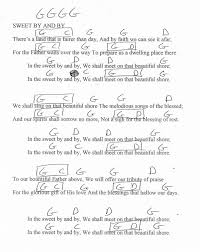 G G G G
SWEET BY AND BY
G C G D
There's a land that is fairer than day, And by faith we can see it afar;
G C G D G
For the Father waits over the way To prepare us a dwelling place there
G D G
In the sweet by and by, We shall meet on that beautiful shore;
G C G D G
In the sweet by and by, We shall meet on that beautiful shore.
G C G D
We shall sing on that beautiful shore The melodious songs of the blessed;
G C G D G
And our spirits shall sorrow no more, Not a sigh for the blessing of rest.
G D G
In the sweet by and by, We shall meet on that beautiful shore;
G C G D G
In the sweet by and by, We shall meet on that beautiful shore.
G C G D
To our bountiful Father above, We will offer our tribute of praise
G C G D G
For the glorious gift of His love And the blessings that hallow our days.
G D G
In the sweet by and by, We shall meet on that beautiful shore;
G C G D G
In the sweet by and by, We shall meet on that beautiful shore.